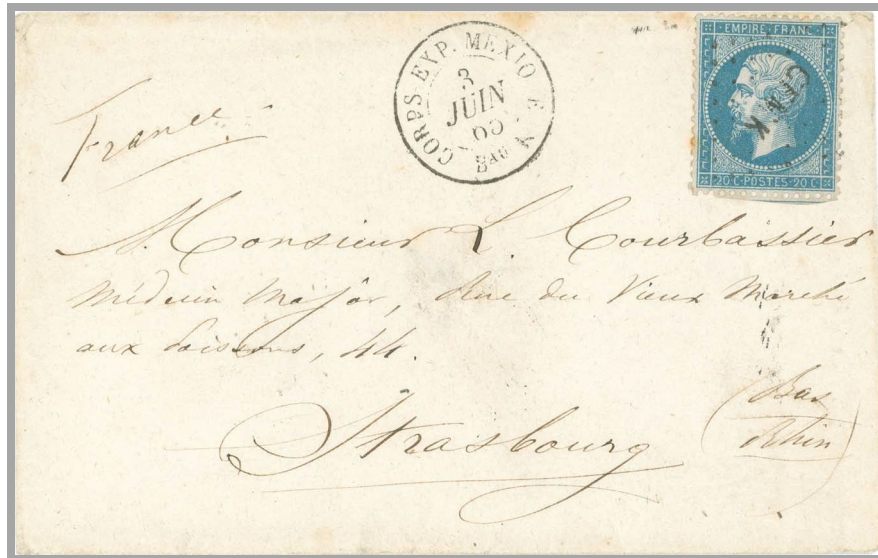 CORPS EXP. MEXIQ. Eau N
3
JUIN
65
EMPIRE FRANC
CEMK
20 C·POSTES·20 C
France
Monsieur L Courbassier
Médecin Major, Rue du Vieux Marché
aux Poissons, 44.
Strasbourg
(Bas
Rhin)